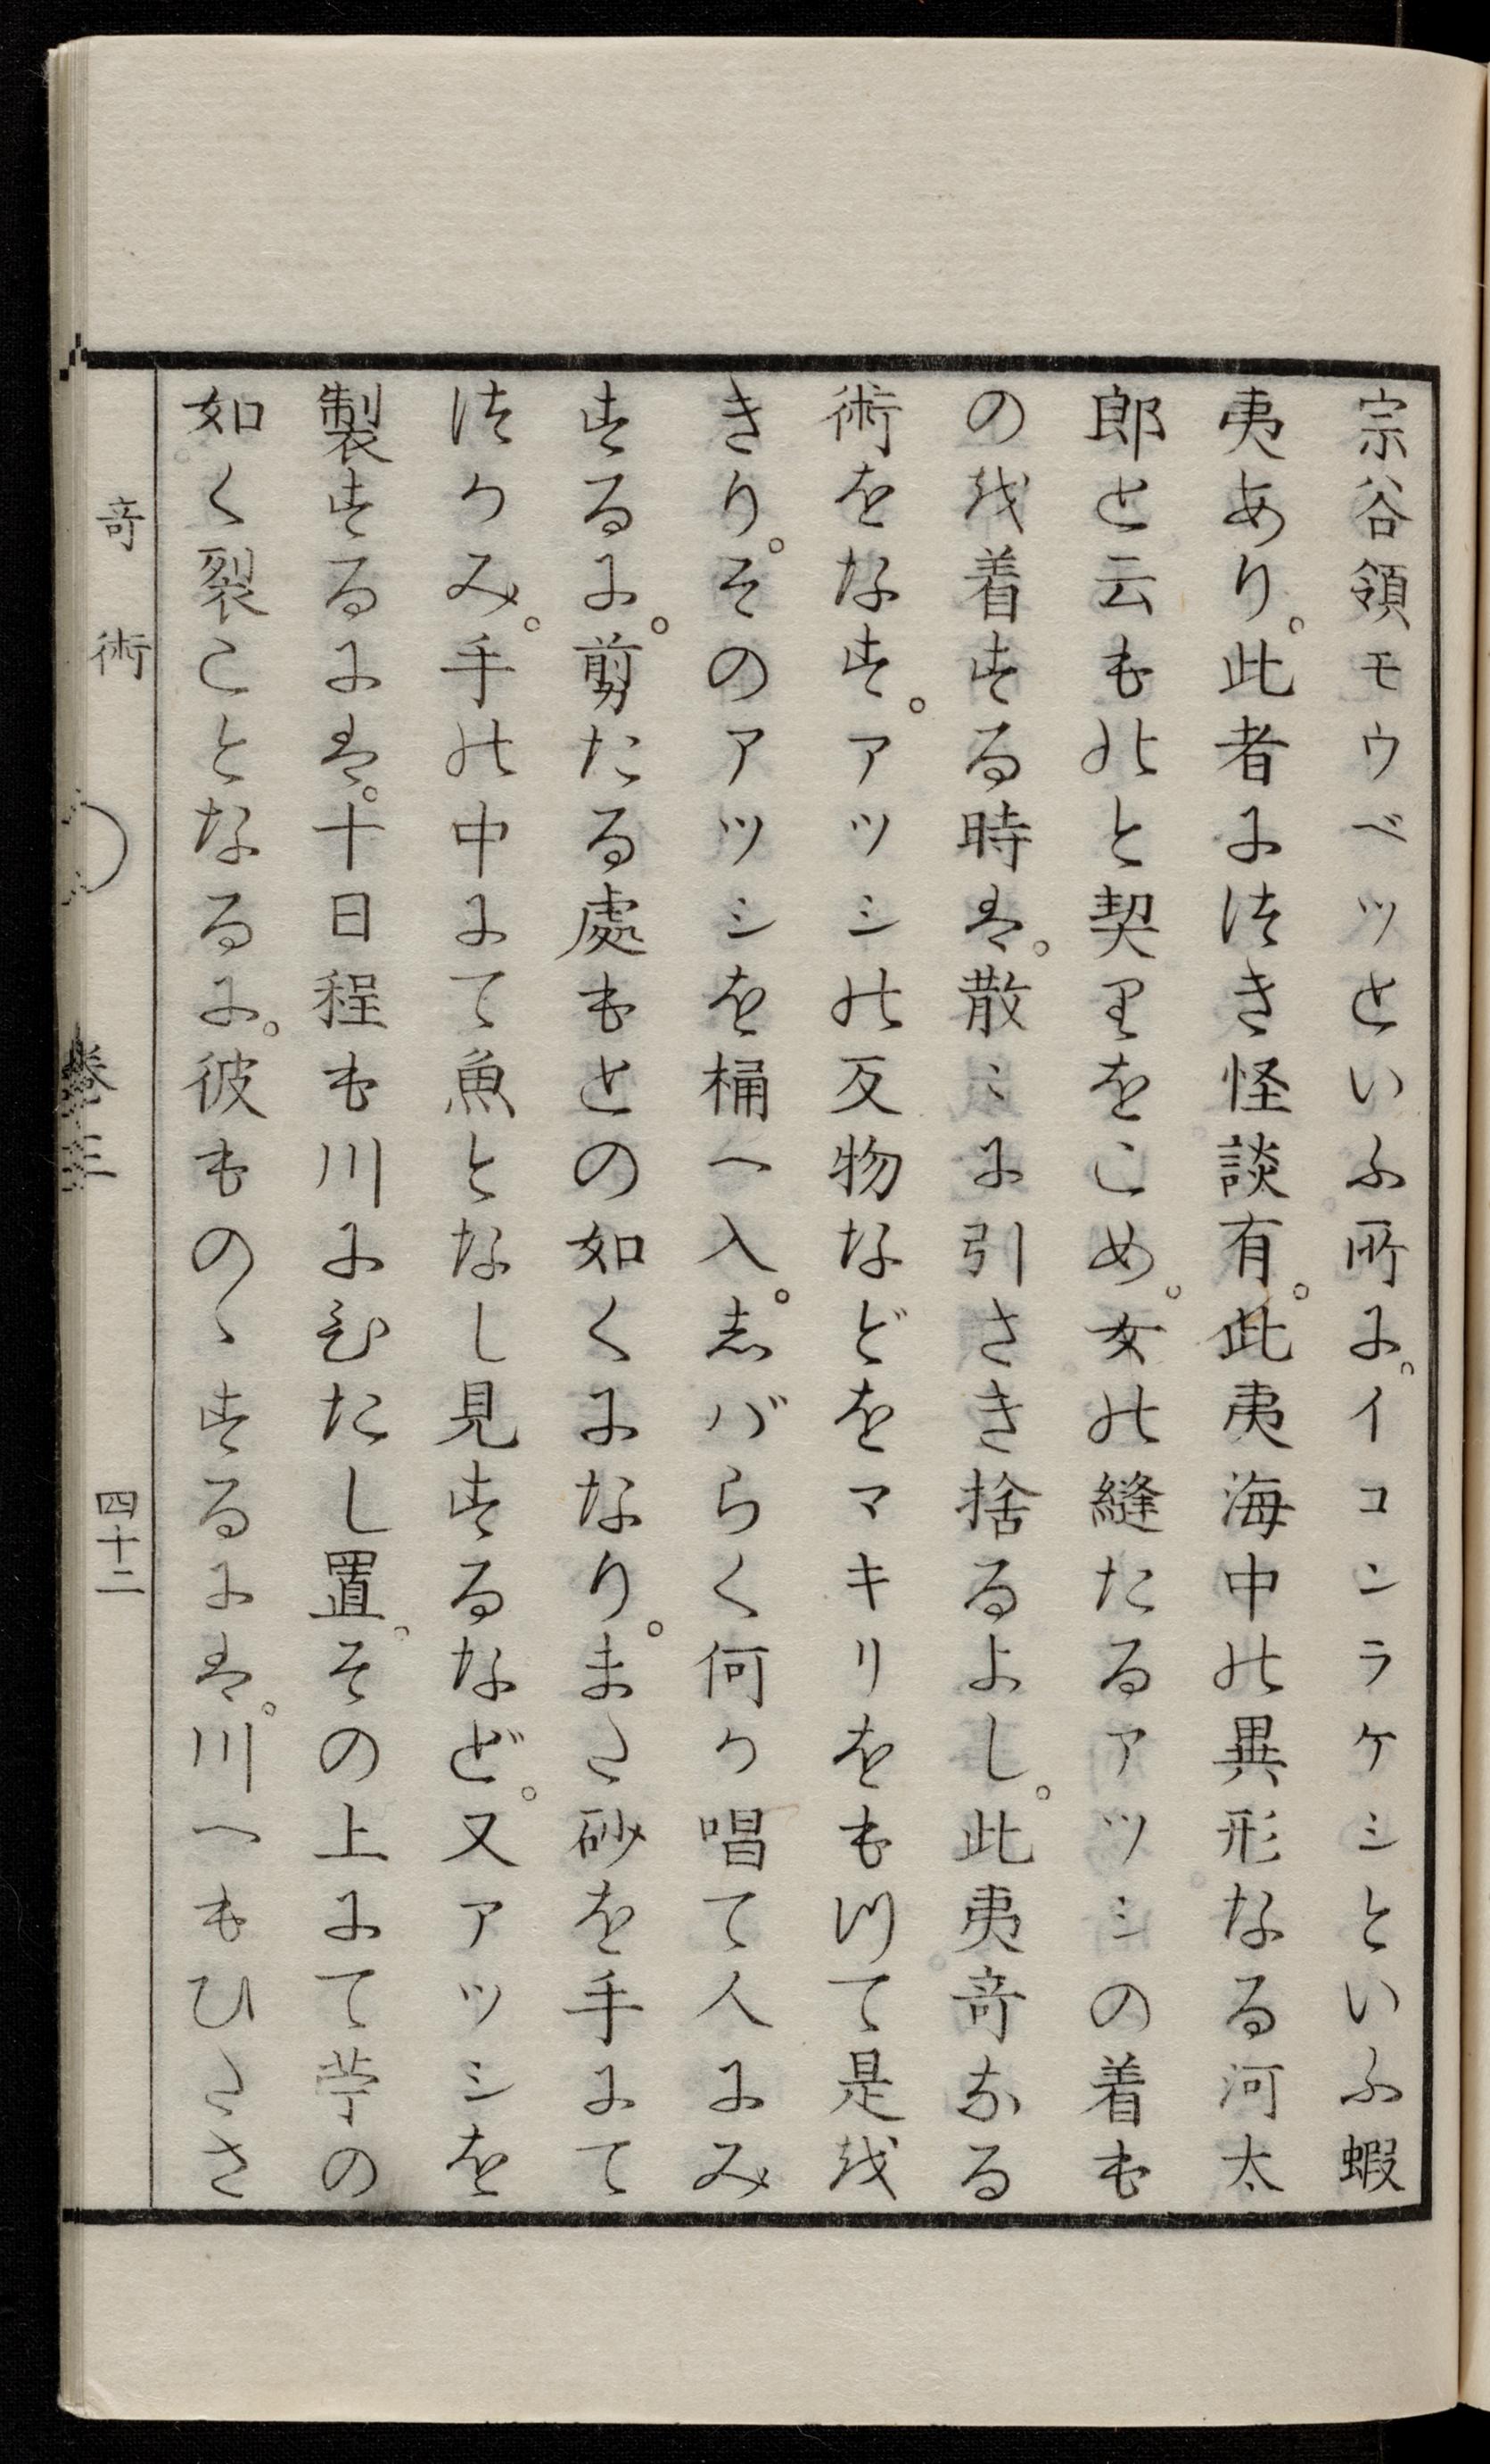 宗谷領モウベツといふ所に。イコンラケシといふ蝦
夷あり。此者につき怪談有。此夷海中の異形なる河太
郎と云ものと契りをこめ。女の縫たるアツシの着も
のを着する時は。散〻に引さき捨るよし。此夷奇なる
術をなす。アツシの反物などをマキリをもつて是を
きり。そのアツシを桶へ入。志バらく何か唱て人にみ
するに。剪たる處もとの如くになり。また砂を手にて
つかみ。手の中にて魚となし見するなど。又アツシを
製するには。十日程も川にひたし置。その上にて苧の
如く裂ことなるに。彼ものゝするには。川へもひたさ
奇術
巻三
四十二